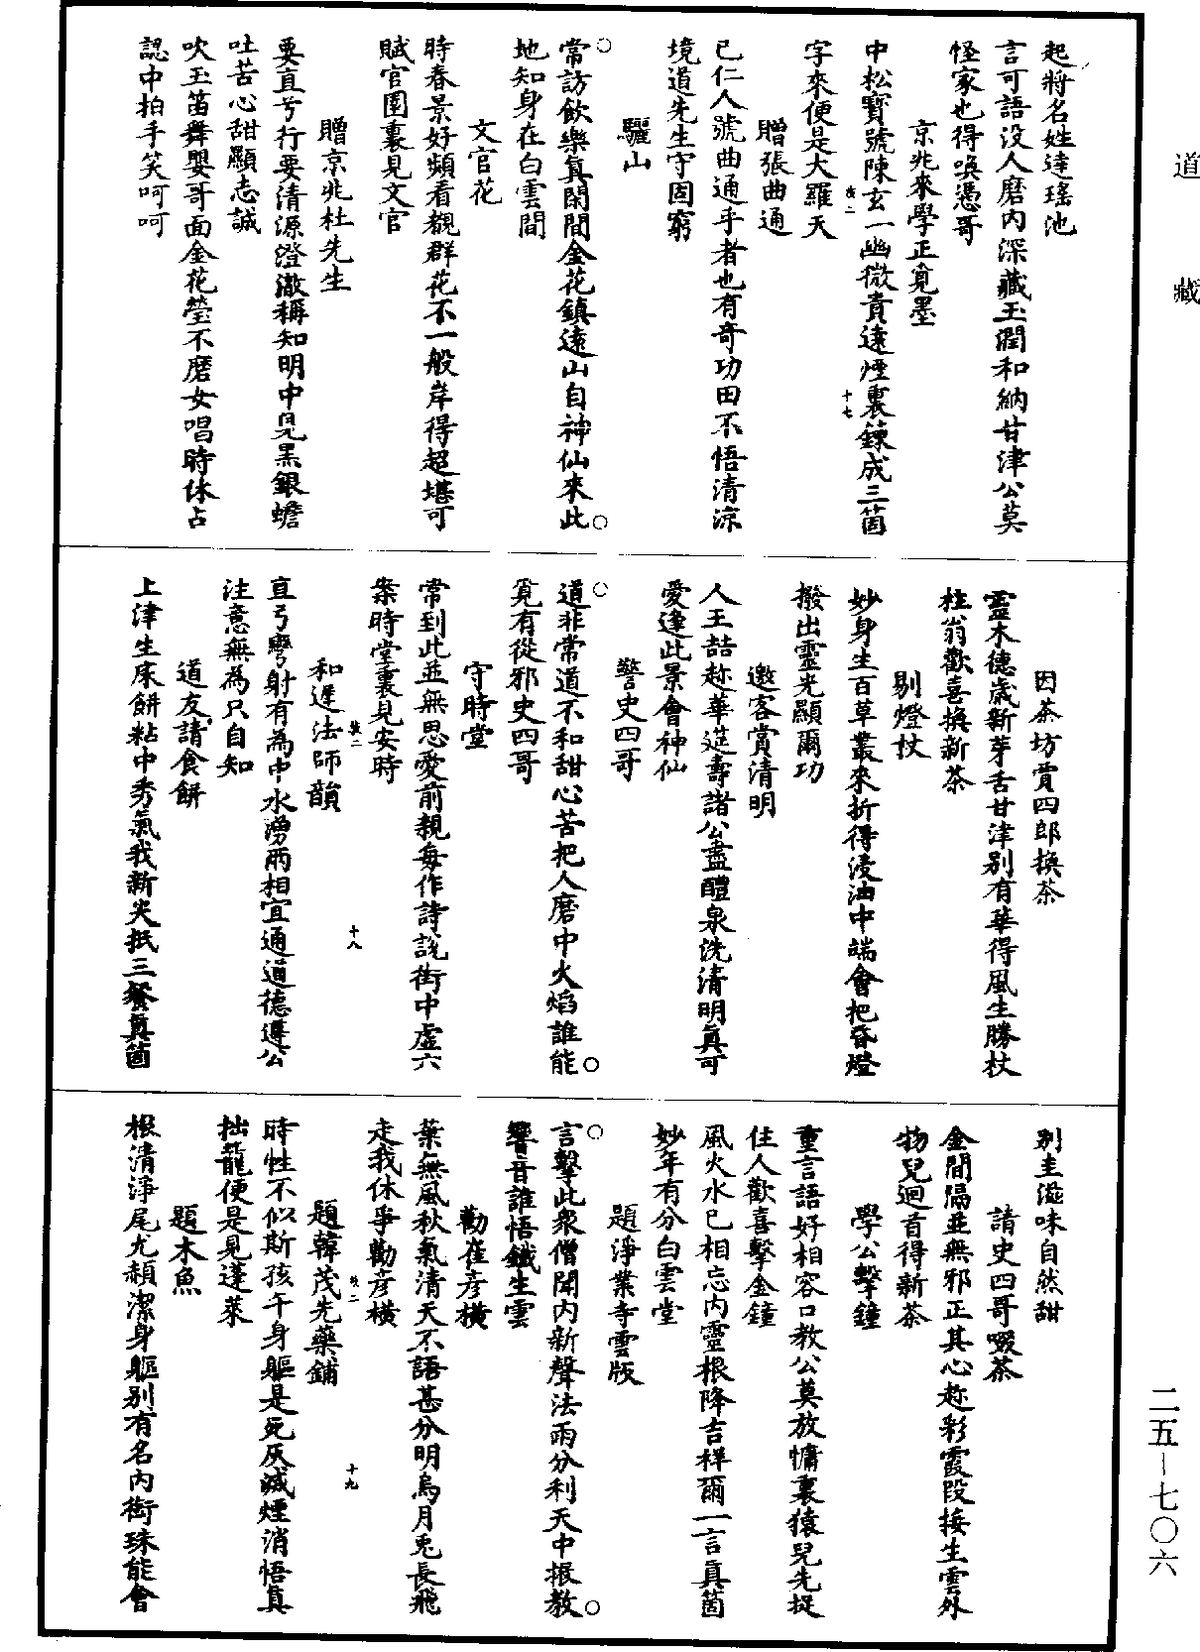 道藏
起將名姓達瑤池
言可語没人磨内深藏玉潤和納甘津公莫
怪家也得喚憑哥
京兆來學正覓墨
中松寶號陳玄一幽微貴遠煙裏鍊成三箇
字來便是大羅天
贈張曲通
已仁人號曲通乎者也有奇功田不悟清涼
境道先生守固窮
驪山
常訪飲樂眞閑間金花鎮遠山自神仙來此
地知身在白雲間
文官花
時春景好頻看覩群花不一般岸得超堪可
賦官園裏見文官
贈京兆杜先生
要直兮行要清源澄澈稱知明中見黑銀蟾
吐苦心甜顯志誠
吹玉笛舞嬰哥面金花瑩不磨女唱時休占
認中拍手笑呵呵
十七
因茶坊賈四郎換茶
靈木德歲新芽舌甘津别有華得風生勝杖
柱翁歡喜換新茶
剔燈杖
妙身生百草叢來折得浸油中端會把昏燈
撥出靈光顯爾功
邀客賞清明
人王喆趂華筵壽諸公盡醴泉洗清明眞可
愛逢此景會神仙
警史四哥
道非常道不和甜心苦把人磨中火焰誰能
覓有從邪史四哥
守時堂
常到此並無思愛前親每作詩説街中虛六
案時堂裏見安時
和遲法師韻
直弓彎射有為中水湧兩相宜通道德遲公
注意無為只自知
道友請食餅
上津生床餅粘中秀氣我新尖抵三餐眞箇
十八
别圭滋味自然甜
請史四哥啜茶
金間隔並無邪正其心趂彩霞段接生雲外
物兒迴首得新茶
學公擊鐘
重言語好相容口教公莫放慵裏猿兒先捉
住人歡喜擊金鐘
風火水已相忘内靈根降吉祥爾一言眞箇
妙年有分白雲堂
題淨業寺雲版
言擊此衆僧聞内新聲法雨分利天中振教
響音誰悟鐵生雲
勸崔彦橫
葉無風秋氣清天不語甚分明烏月兎長飛
走我休爭勸彦橫
題韓茂先藥鋪
時性不似斯孩午身軀是死灰滅煙消悟真
拙龍便是見蓬萊
題木魚
根清淨尾尤頳潔身軀别有名内銜珠能會
十九
二五—七〇六